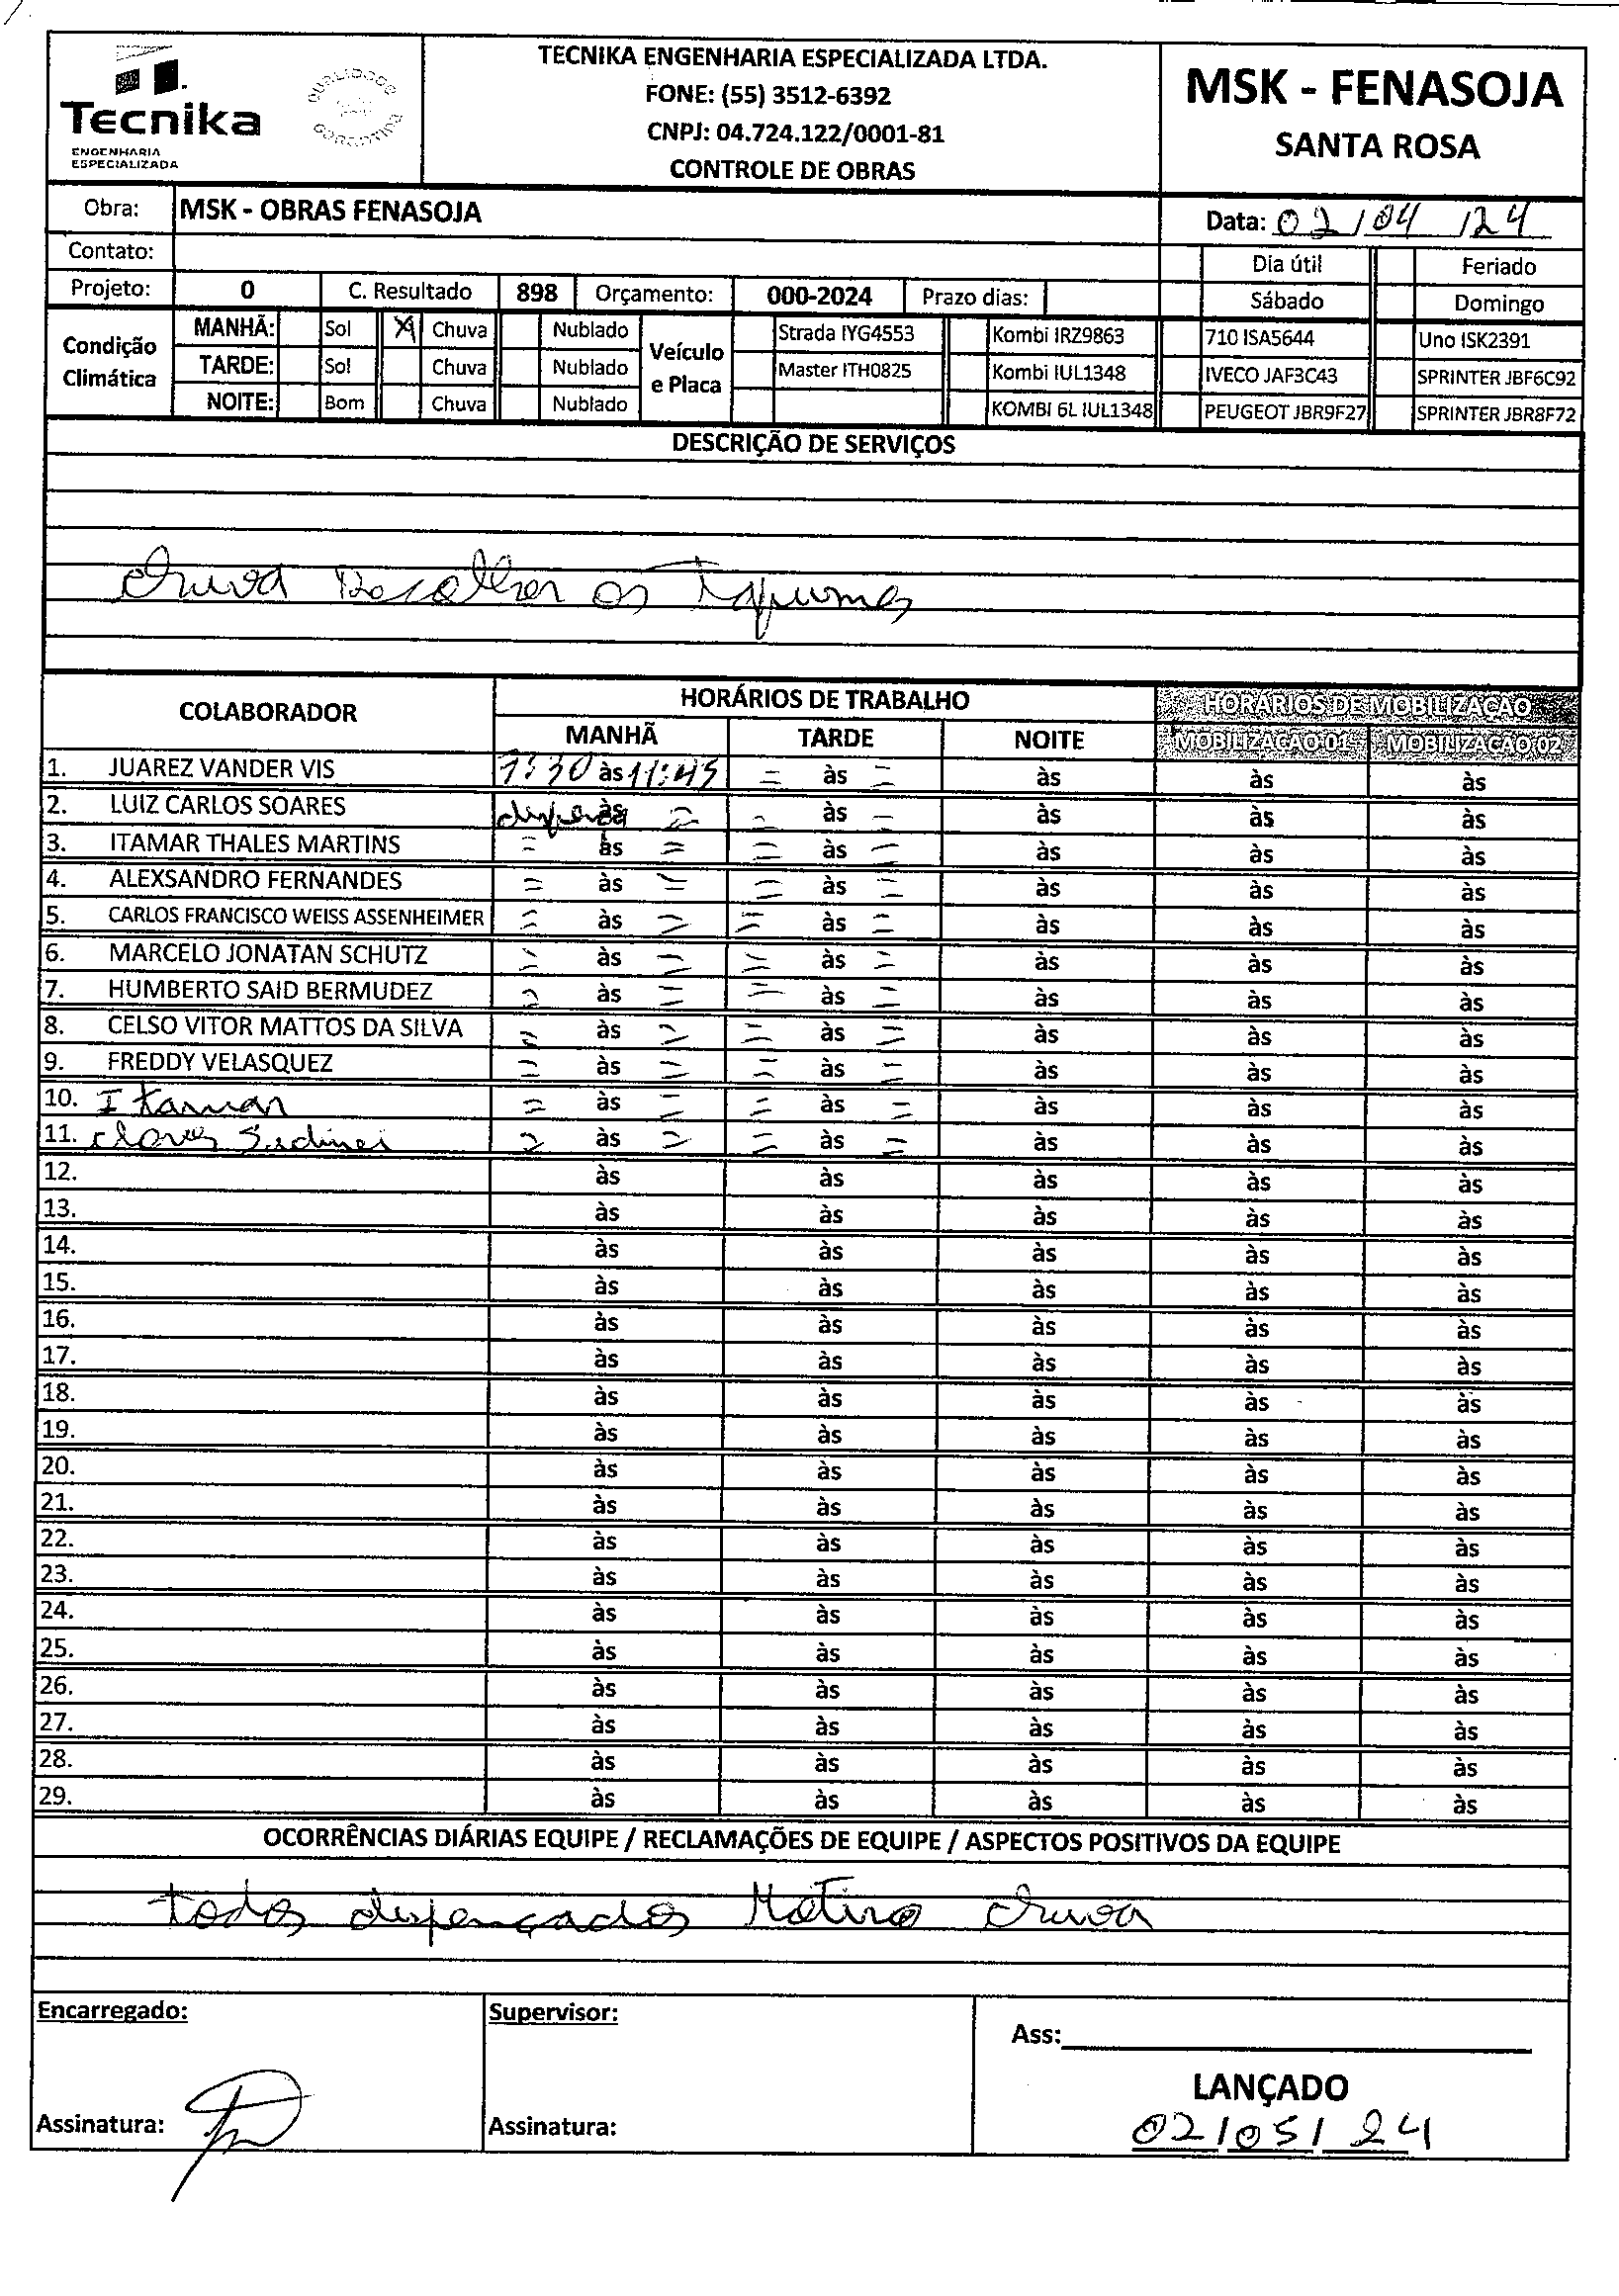 Tecnika
ENGENHARIA
ESPECIALIZADA
QUALIDADE
GARANTIDA
TECNIKA ENGENHARIA ESPECIALIZADA LTDA.
FONE: (55) 3512-6392
CNPJ: 04.724.122/0001-81
CONTROLE DE OBRAS
MSK - FENASOJA
SANTA ROSA
Obra: MSK - OBRAS FENASOJA
Data: 02/04/24
Contato:
Dia útil Feriado
Projeto: 0 C. Resultado 898 Orçamento: 000-2024 Prazo dias:
Sábado Domingo
Condição Climática
MANHÃ: Sol X Chuva Nublado
TARDE: Sol Chuva Nublado
NOITE: Bom Chuva Nublado
Veículo e Placa
Strada IYG4553 Kombi IRZ9863 710 ISA5644 Uno ISK2391
Master ITH0825 Kombi IUL1348 IVECO JAF3C43 SPRINTER JBF6C92
KOMBI 6L IUL1348 PEUGEOT JBR9F27 SPRINTER JBR8F72
DESCRIÇÃO DE SERVIÇOS
chuva Recolher os Tapumes
COLABORADOR HORÁRIOS DE TRABALHO HORÁRIOS DE MOBILIZAÇÃO
MANHÃ TARDE NOITE MOBILIZAÇÃO 01 MOBILIZAÇÃO 02
1. JUAREZ VANDER VIS 7:30 às 11:45 = às = às às às
2. LUIZ CARLOS SOARES às = - às - às às às
3. ITAMAR THALES MARTINS = às = = às = às às às
4. ALEXSANDRO FERNANDES = às = = às = às às às
5. CARLOS FRANCISCO WEISS ASSENHEIMER = às = = às = às às às
6. MARCELO JONATAN SCHUTZ = às = = às = às às às
7. HUMBERTO SAID BERMUDEZ = às = = às = às às às
8. CELSO VITOR MATTOS DA SILVA = às = = às = às às às
9. FREDDY VELASQUEZ = às = = às = às às às
10. Itamar = às = = às = às às às
11. = às = = às = às às às
12. às às às às às
13. às às às às às
14. às às às às às
15. às às às às às
16. às às às às às
17. às às às às às
18. às às às às às
19. às às às às às
20. às às às às às
21. às às às às às
22. às às às às às
23. às às às às às
24. às às às às às
25. às às às às às
26. às às às às às
27. às às às às às
28. às às às às às
29. às às às às às
OCORRÊNCIAS DIÁRIAS EQUIPE / RECLAMAÇÕES DE EQUIPE / ASPECTOS POSITIVOS DA EQUIPE
todos dispençados Motivo chuva
Encarregado: Supervisor:
Ass:
LANÇADO
Assinatura: Assinatura:
02/05/24